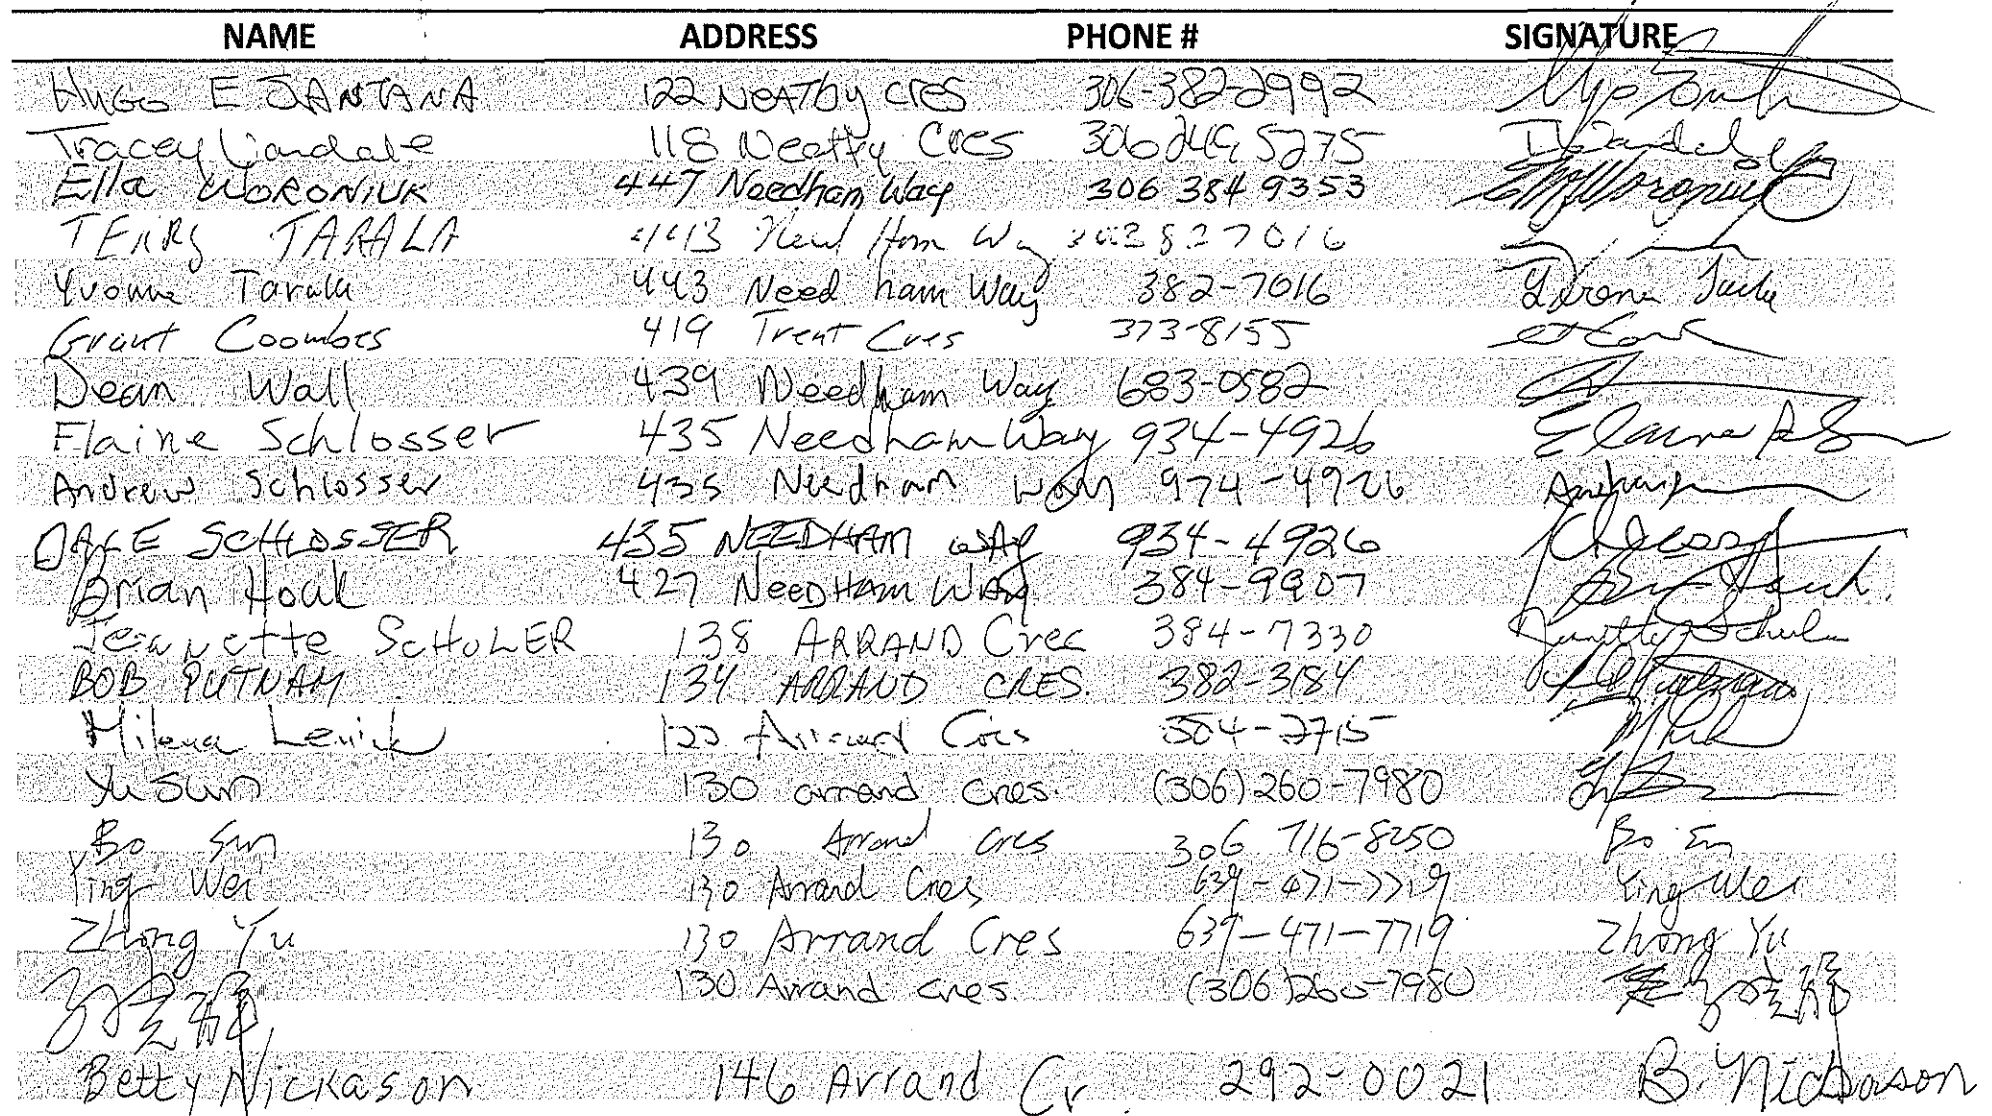 NAME ADDRESS PHONE # SIGNATURE
HUGO E SANTANA 122 NEATby cres 306-382-2992
Tracey 118 Neatby Cres 306 249 5275
Ella WORONIUK 447 Needham Way 306 384 9353
TERRY TARALA 443 Need Ham Way 306 382 7016
Yvonne Tarala 443 Need ham Way 382-7016
Grant Coombes 419 Trent Cres 373-8155
Dean Wall 439 Needham Way 683-0582
Elaine Schlosser 435 Needham Way 934-4926 Elaine
Andrew Schlosser 435 Needham Way 974-4926
DALE SCHLOSSER 435 NEEDHAM WAY 934-4926
Brian Houk 427 NEEDHAM WAY 384-9907
Jeannette SCHULER 138 ARRAND Cres 384-7330 Jeannette Schuler
BOB PUTNAM 134 ARRAND CRES. 382-3184
Milena 122 Arrand Cres
Yu Sun 130 arrand cres. (306)260-7980
Bo Sun 130 Arrand cres 306 716-8250 Bo Sun
Ying Wei 130 Arrand Cres 639-471-7719 Ying Wei
Zhong Yu 130 Arrand Cres 639-471-7719 Zhong Yu
130 Arrand cres. (306)260-7980
Betty Nickason 146 Arrand Cr. 292-0021 B. Nickason